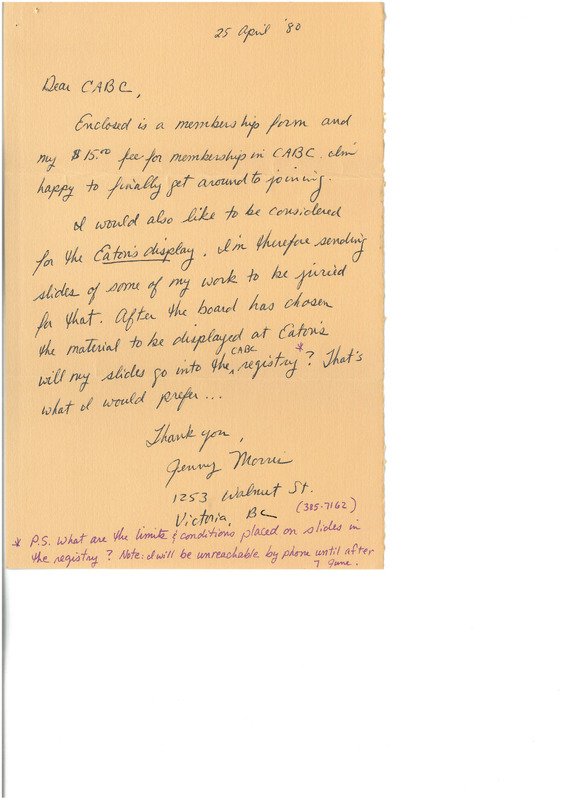 25 April '80
Dear CABC,
Enclosed is a membership form and
my $15.00 fee for membership in CABC. I'm
happy to finally get around to joining.
I would also like to be considered
for the Eaton's display. I'm therefore sending
slides of some of my work to be juried
for that. After the board has chosen
the material to be displayed at Eaton's
will my slides go into the CABC registry*? That's
what I would prefer...
Thank you,
Jenny Morris
1253 Walnut St.
(385-7162)
Victoria, BC
* P.S. What are the limits & conditions placed on slides in
the registry? Note: I will be unreachable by phone until after
7 June.